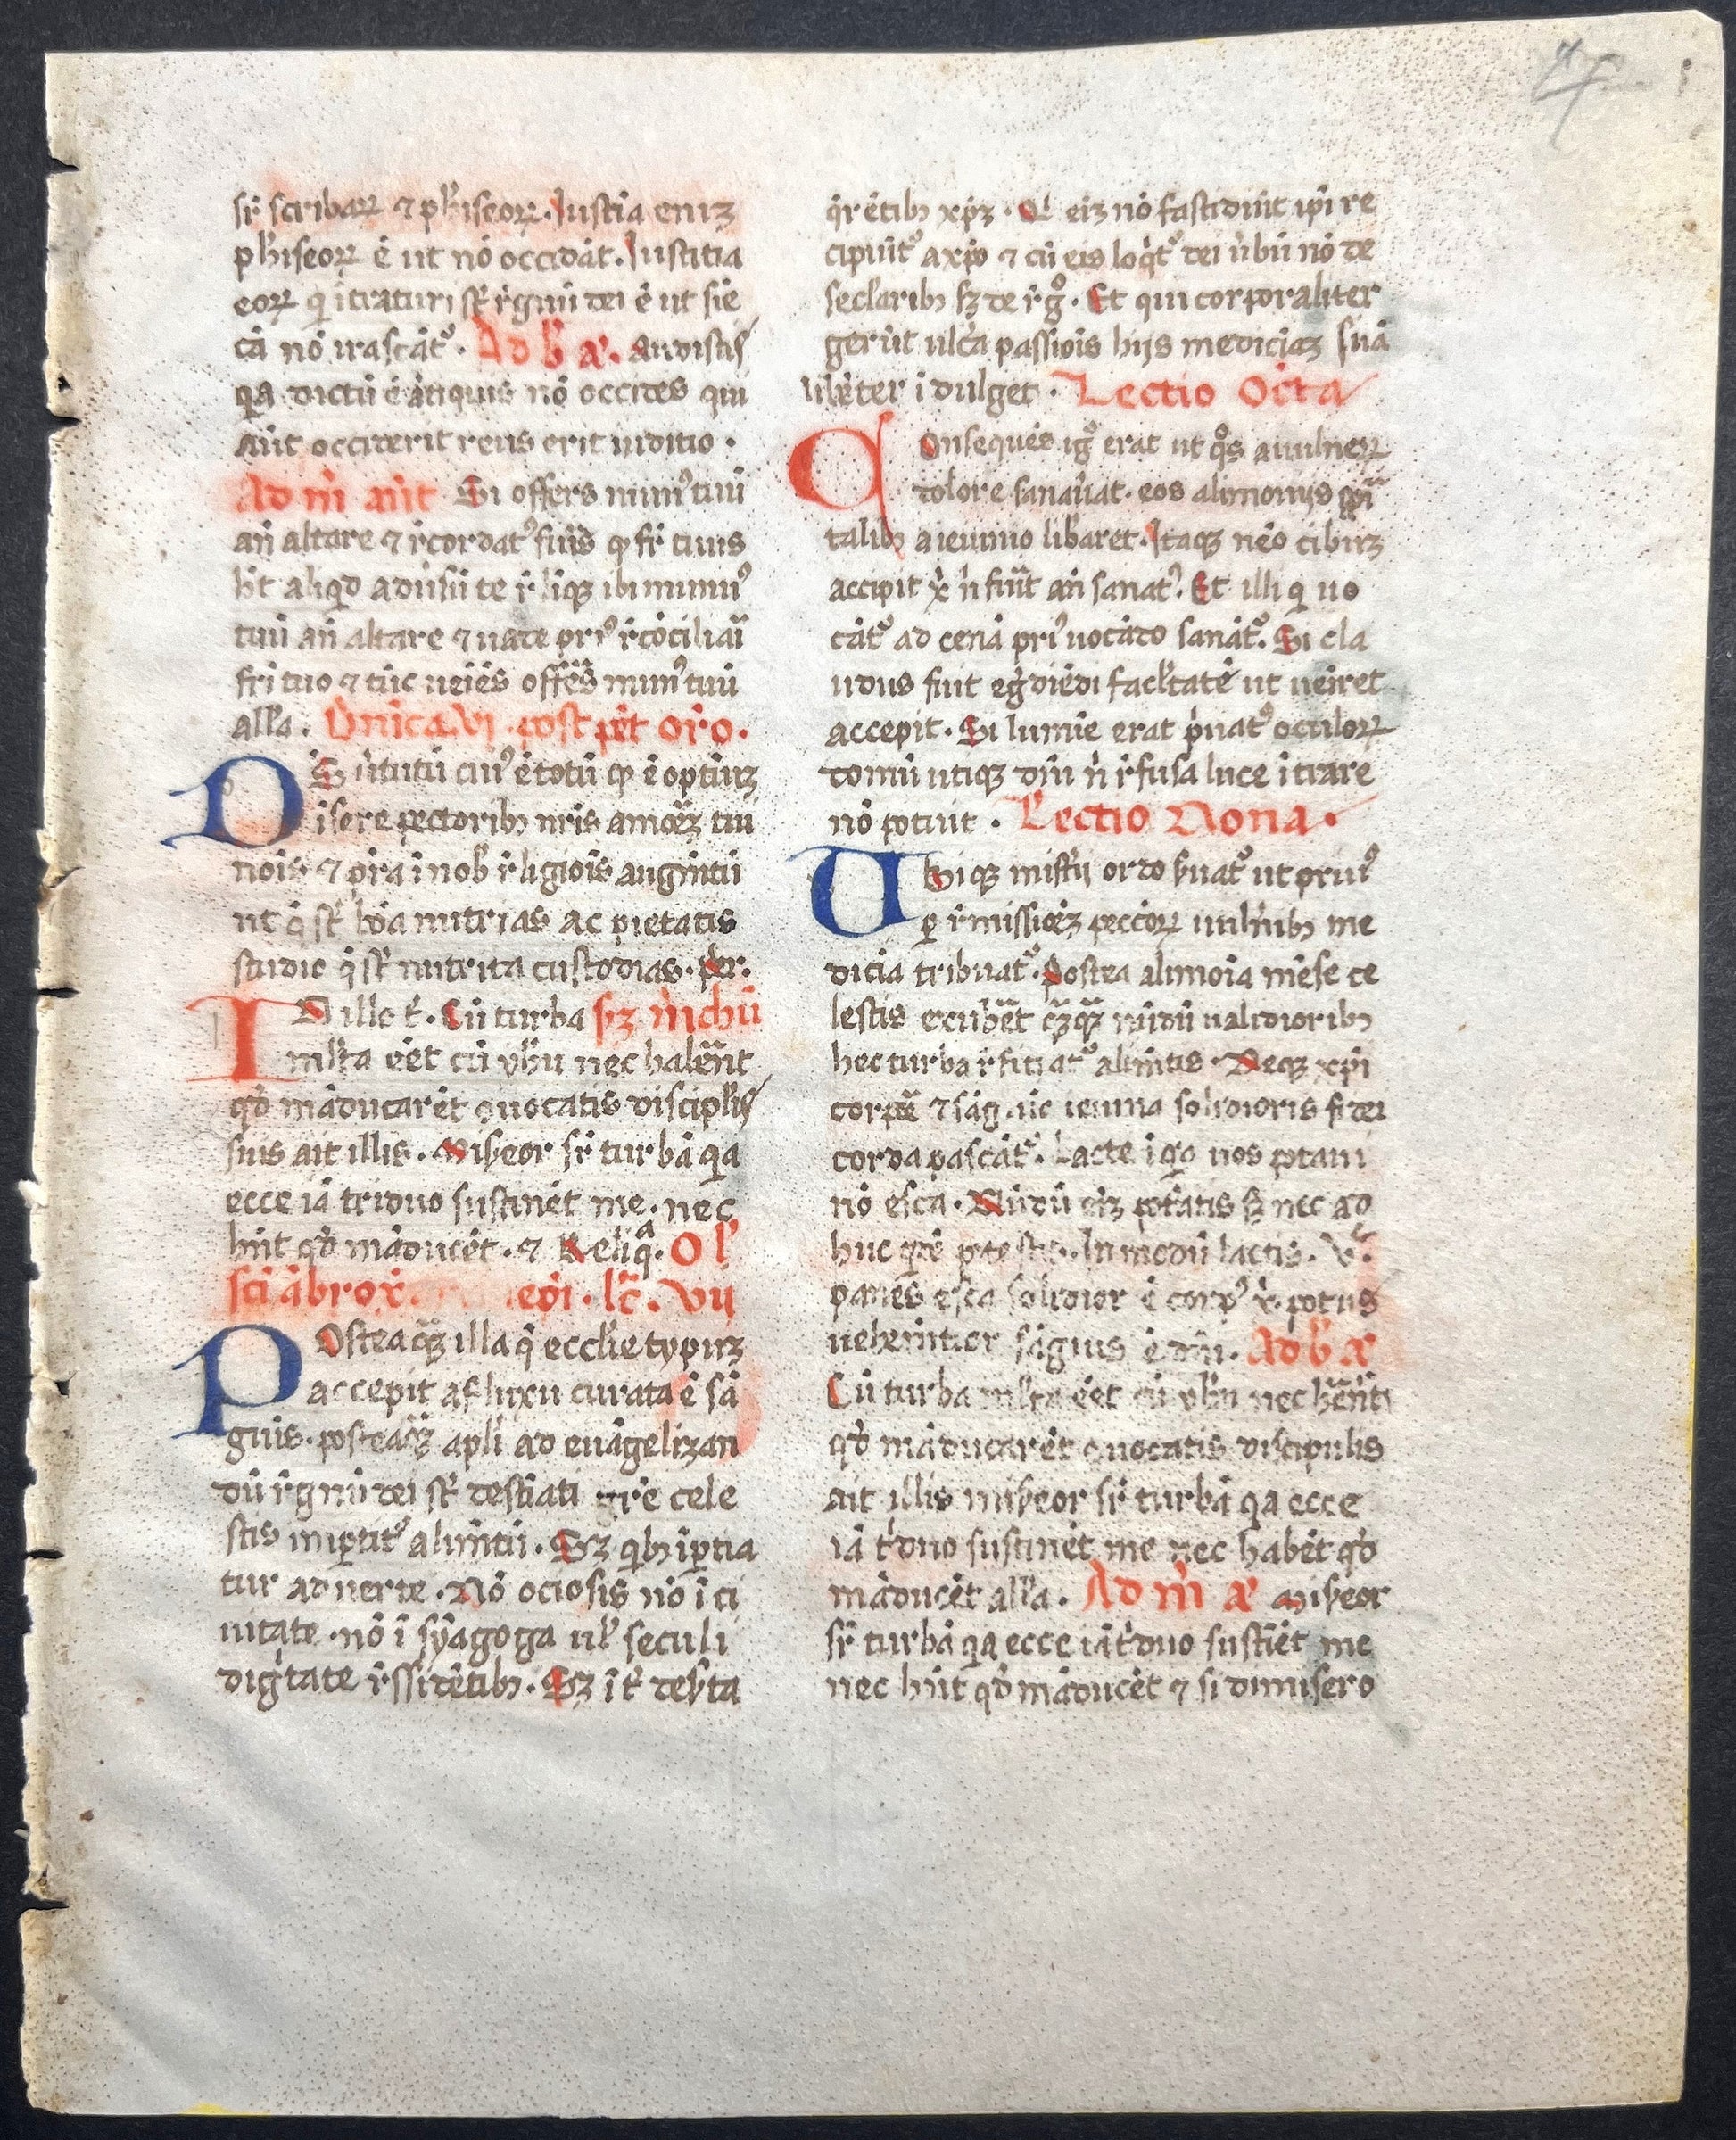 sr̄ scribaꝝ ⁊ ph̓iseoꝝ. Iustīa eniꝫ
ph̓iseoꝝ ē ut nō occidāt. Iustitia
eoꝝ q̇ ītraturi st̄ r̓gnū dei ē ut sīe
cā nō irascāt᷒. Ad b̄ a᷒. Audistis
qa dictū ē ātiquis nō occides qui
aūt occiderit reus erit iuditio.
Ad m̄ añt Si offers mun᷒ tuū
añ altare ⁊ r̓cordat᷒ fūīs ꝙ fr̄ tuus
ht̄ aliqd adūsū te r̓liqꝫ ibi munu᷒
tuū añ altare ⁊ uade pri᷒ r̓cōciliaī
frī tuo ⁊ tūc ueīēs offēs mun᷒ tuū
all̓a. Dn̄ica. vj. post pēt. oro.
DS ūtutū cui᷒ ē totū ꝙ ē optiūꝫ
īsere pectoribꝫ nr̄is amōꝫ tui
nōis ⁊ p̄ra ī nob̄ r̓ligiōis augm̄tū
ut q̄ st̄ bōa nutrias ac pietatis
studio q̄ st̄ nutrita custodias. per.
IN illo t̄. Cū turba sꝫ m̄chū
ml̓ta eēt cū yh̄u nec habēnt
qd̄ māducarēt ꝯuocatis discipl̓is
suis ait illis. Mis̄eor sr̄ turbā qa
ecce iā triduo sustinēt me. nec
hn̄t qd̄ māducēt. ⁊ Reliqᵃ. Ol̓
scī ābrox̄. epī. lc̄. vij
POsteaqꝫ illa q̄ eccl̓ie typuꝫ
accepit a fluxu curata ē sā
guis. posteaqꝫ apl̄i ad euāgelizan
dū r̓gnū dei st̄ destīati gr̄e cele
stis imꝑtit᷒ alim̄tū. Sꝫ qbꝫ īꝑtia
tur aduerte. Nō ociosis nō ī ci
uitate nō ī syāgoga ul̓ seculi
dig̓tate r̓ssidētibꝫ. Sꝫ īt̄ des̄ta
q̄rētibꝫ xp̄ꝫ. Q̄ eīꝫ nō fastidiūt ip̄i re
cipiūt᷒ a xp̄o ⁊ cū eis loq̄t᷒ dei ūbū nō de
secl̓aribꝫ sꝫ de r̓g̊. Et qui corporaliter
gerūt ulc̓a passiōis hijs mediciāꝫ suā
libēter īdulget. Lectio Octa
COnsequēs ig̊ erat ut q̊s a uulneꝝ
dolore sanaūat. eos alimonijs spūa
talibꝫ a ieiunio lib̄aret. Itaqꝫ nēo cibuꝫ
accipit x̄ n̄ fiūt añ sanat᷒. Et illi q̇ uo
cāt᷒ ad cenā pri᷒ uocādo sanāt᷒. Si cla
udus fuit eg̓diēdi facl̓tatē ut ueīret
accepit. Si lumīe erat p̄uat᷒ oculoꝝ
domū utiqꝫ dn̄i n̄ r̓fusa luce ītrare
nō potuit. Lectio Nona.
Ubiqꝫ mist̓ij ordo s̄uat᷒ ut priu᷒
ꝑ r̓missiōꝫ peccōꝝ uuln̓ibꝫ me
dicīa tribuat᷒. Postea alimōia mēse ce
lestis exub̄et qꝫqꝫ nūdū ualidioribꝫ
hec turba r̓ficiat᷒ alim̄tis. Neqꝫ xp̄i
corpē ⁊ sāg ie ieiuna solidioris fidei
corda pascāt᷒. Lacte īqo nos potaui
nō esca. Nūdū eīꝫ potatis sꝫ nec ad
huc qdē potestis. In modū lactis. v.
panēs esca solidior ē corp᷒ x̄. potus
uehem̄tior sāguis ē dn̄i. Ad b̄ a᷒
Cū turba ml̓ta eēt cū yh̄u nec hēnt
qd̄ māducarēt ꝯuocatis discipulis
ait illis mis̄eor sr̄ turbā qa ecce
iā t̓duo sustinēt me nec habēt qd̄
māducēt all̓a. Ad m̄ a᷒ Mis̄eor
sr̄ turbā qa ecce iā t̓duo sustīēt me
nec hn̄t qd̄ māducēt ⁊ si dimisero